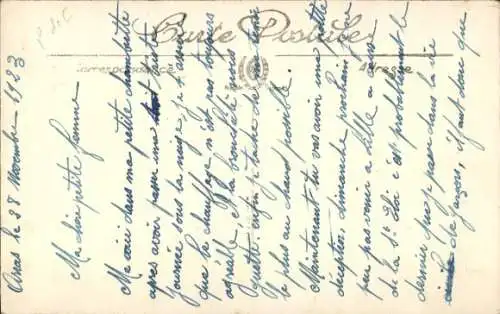 P & C
Carte Postale
Correspondance
Adresse
Arras le 28 Novembre 1923
Ma chère petite femme
Me voici dans ma petite chambrette
après avoir passé une tout toute
journée sous la neige, je t'assure
que le chauffage n'est pas toujours
agréable et la brouette, je vois
enfin je tâche de me tenir
le plus au chaud possible.
Maintenant tu vas avoir une petite
déception, dimanche prochain je ne
peux pas venir à Lille à cas
de la St Eloi c'est probablement le
dernier que je passe dans la vie
de garçon, il faut donc que